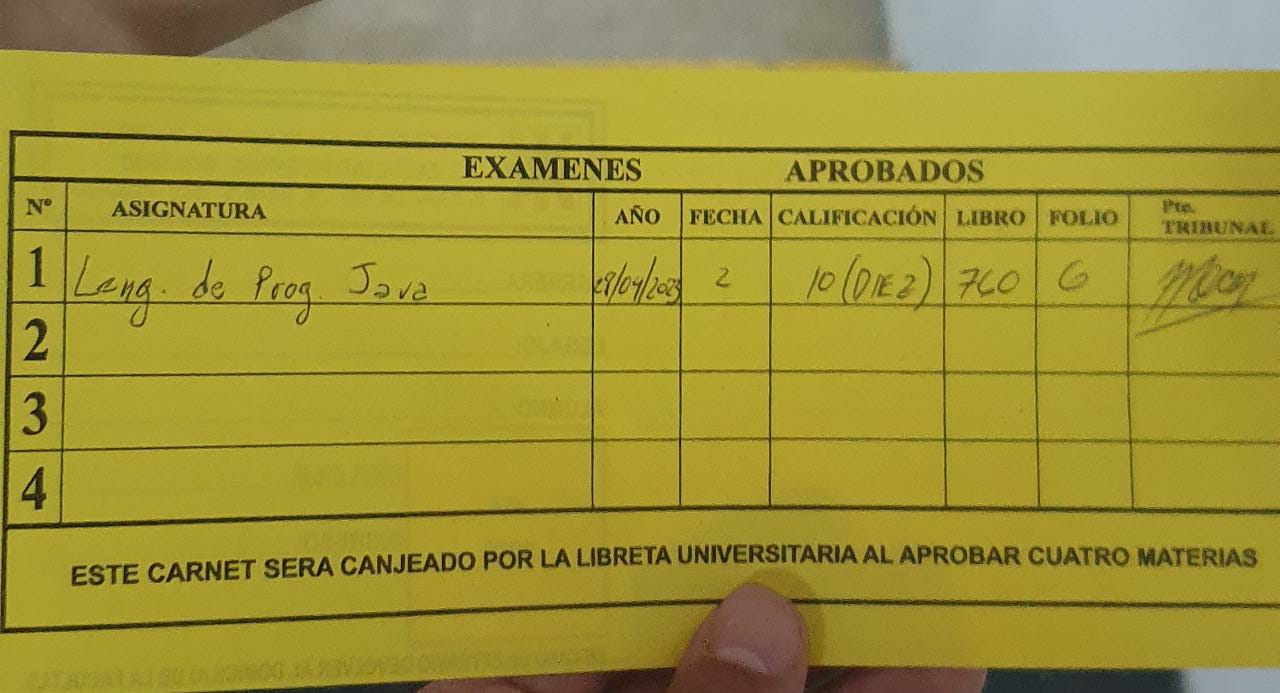 EXAMENES APROBADOS
Nº ASIGNATURA AÑO FECHA CALIFICACIÓN LIBRO FOLIO Pte. TRIBUNAL
1 Leng. de Prog. Java 28/04/2023 2 10 (DIEZ) 760 6
2
3
4
ESTE CARNET SERA CANJEADO POR LA LIBRETA UNIVERSITARIA AL APROBAR CUATRO MATERIAS